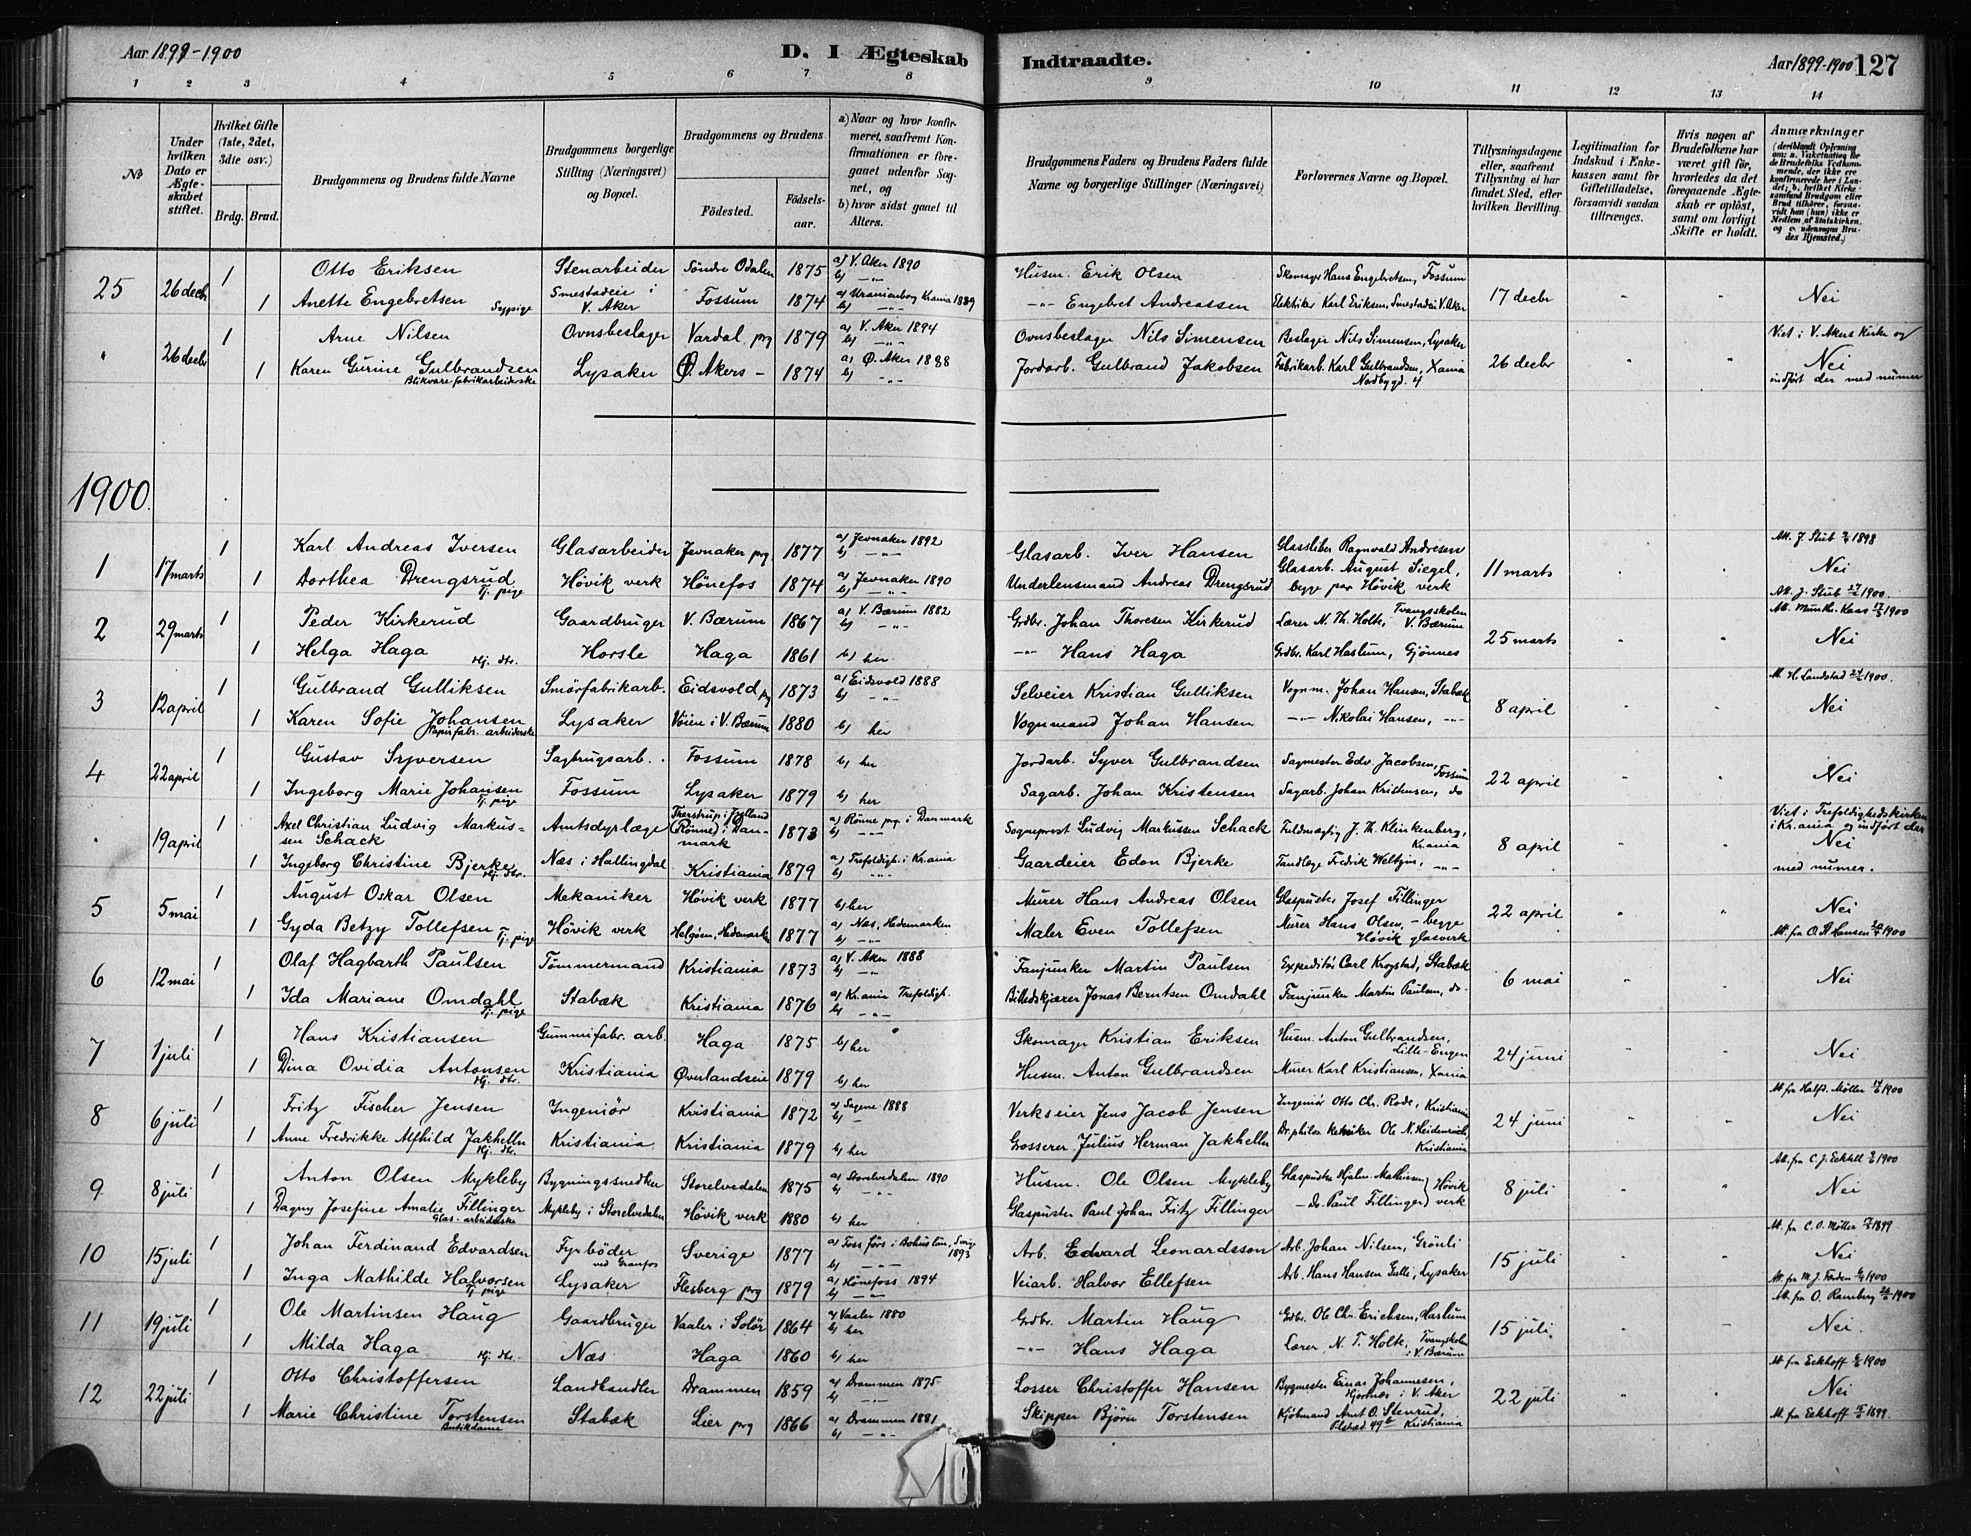 Aar 1899-1900
D. I Ægteskab Indtraadte.
Aar 1899-1900 127
1 2 3 4 5 6 7 8 9 10 11 12 13 14
No
Under hvilken Dato er Ægteskabet stiftet.
Hvilket Gifte (1ste, 2det, 3die osv.)
Brdg. Brud.
Brudgommens og Brudens fulde Navne
Brudgommens borgerlige Stilling (Næringsvei) og Bopæl.
Brudgommens og Brudens
Fødested. Fødselsaar.
a) Naar og hvor konfirmeret, saafremt Konfirmationen er foregaaet udenfor Sognet, og
b) hvor sidst gaaet til Alters.
Brudgommens Faders og Brudens Faders fulde Navne og borgerlige Stillinger (Næringsvei)
Forlovernes Navne og Bopæl.
Tillysningsdagene eller, saafremt Tillysning ei har fundet Sted, efter hvilken Bevilling.
Legitimation for Indskud i Enkekassen samt for Giftetilladelse, forsaavidt saadan tiltrænges.
Hvis nogen af Brudefolkene har været gift før, hvorledes da det foregaaende Ægteskab er opløst, samt om lovligt Skifte er holdt.
Anmærkninger
25 26 decbr 1 Otto Eriksen Stenarbeider Söndre Odalen 1875 a) V. Aker 1890 b) -"- Husm. Erik Olsen Skomager Hans Engebretsen, Fossum
1 Anette Engebretsen Sypige Smestadeie i V. Aker Fossum 1874 a) Uranienborg Krania 1889 b) -"- -"- Engebret Andreassen Elektriker Karl Eriksen, Smestadeie V. Aker 17 decbr " " Nei
" 26 decbr 1 Arne Nilsen Ovnsbeslager Vardal prg 1879 a) V. Aker 1894 b) -"- Ovnsbeslager Nils Simensen Beslager Nils Simensen, Lysaker Viet i V. Akers Kirke og
1 Karen Gurine Gulbrandsen Blikvarefabrikarbeiderske Lysaker Ø. Akers - 1874 a) Ø. Aker 1888 b) -"- Jordarb. Gulbrand Jakobsen Fabrikarb. Karl Gulbrandsen, Xania Nordbygd. 4 26 decbr " " Nei indført der med numer
1900.
1 17 marts 1 Karl Andreas Iversen Glasarbeider Jevnaker prg. 1877 a) Jevnaker 1892 b) -"- Glasarb. Iver Hansen Glassliber Ragnvald Andresen Att. J. Stub 1898
1 Dorthea Drengsrud Tj. pige Hövik verk Hönefos 1874 a) Jevnaker 1890 b) -"- Underlensmand Andreas Drengsrud Glasarb. August Siegel, begge per Hövik verk 11 marts Nei Att. J. Stub 1900.
2 29 marts 1 Peder Kirkerud Gaardbruger V. Bærum 1867 a) V. Bærum 1882 b) -"- Grdbr. Johan Thoresen Kirkerud Lærer N. Th. Holte, Tvangsskolen V. Bærum Att. Munthe-Kaas 1900
1 Helga Haga Hj. dtr. Horsle Haga 1861 b) her -"- Hans Haga Grdbr. Karl Haslum, Gjönnes 25 marts Nei
3 12 april 1 Gulbrand Gulliksen Smörfabrikarb. Eidsvold prg 1873 a) Eidsvold 1888 b) -"- Selveier Kristian Gulliksen Vognm. Johan Hansen, Stabæk Att. H. Landstad 1900.
1 Karen Sofie Johansen Papirfabr. arbeiderske Lysaker Vöien i V. Bærum 1880 b) her Vognmand Johan Hansen -"- Nikolai Hansen, -"- 8 april Nei
4 22 april 1 Gustav Syversen Sagbrugsarb. Fossum 1878 b) her Jordarb. Syver Gulbrandsen Sagmester Edv. Jacobsen, Fossum
1 Ingeborg Marie Johansen Tj. pige Fossum Lysaker 1879 b) her Sagarb. Johan Kristensen Sagarb. Johan Kristensen, do 22 april Nei
" 19 april 1 Axel Christian Ludvig Markussen Schack Amtsdyrlæge (Rönne) i Danmark 1873 a) Rönne prg. i Danmark b) -"- Sogneprest Ludvig Markussen Schack Fuldmægtig J. Th. Klinkenberg, Krania Viet i Trefoldighedskirken i Krania og indført der
1 Ingeborg Christine Bjerke Hj. dtr. Næs i Hallingdal Kristiania 1879 a) Trefoldigh. i Krania b) -"- Gaardeier Edon Bjerke Tandlæge Fredrik Weltzin, -"- 8 april Nei med numer.
5 5 mai 1 August Oskar Olsen Mekaniker Høvik verk 1877 b) her Murer Hans Andreas Olsen Glaspuster Josef Fillinger
1 Gyda Betzy Tollefsen Tj. pige Høvik verk Helgöen, Hedemarken 1877 a) Nes, Hedemarken b) -"- Maler Even Tollefsen Murer Hans Olsen, - begge Høvik glasverk 22 april Nei Att. fra O. A. Hansen 1900
6 12 mai 1 Olaf Hagbarth Paulsen Tømmermand Kristiania 1873 a) V. Aker 1888 b) -"- Fanjunker Martin Paulsen Expeditör Carl Krogstad, Stabæk
1 Ida Mariane Omdahl Tj. pige Stabæk Kristiania 1876 a) Krania Trefoldigh. b) -"- Billedskjærer Jonas Berntsen Omdahl Fanjunker Martin Paulsen, do - 6 mai Nei
7 1 juli 1 Hans Kristiansen Gummifabr. arb. Haga 1875 b) her Skomager Kristian Eriksen Husm. Anton Gulbrandsen, Lille-Engen
1 Dina Ovidia Antonsen Hj. dtr. Kristiania Øverlandseie 1879 b) her Husm. Anton Gulbrandsen Murer Karl Kristiansen, Xania 24 juni Nei
8 6 juli 1 Fritz Fischer Jensen Ingeniør Kristiania 1872 a) Sagene 1888 b) - Verkseier Jens Jacob Jensen Ingeniör Otto Chr. Rode, Kristiania Att. fra Halfd. Møller 1900
1 Anne Fredrikke Alfhild Jakhelln Hj. dtr. Kristiania Kristiania 1879 b) her Grosserer Julius Herman Jakhelln Dr. philos. Ole N. Heidenreich, Kristiania 24 juni Nei
9 8 juli 1 Anton Olsen Mykleby Bygningssnedker Storelvedalen 1875 a) Storelvedalen 1890 b) -"- Husm. Ole Olsen Mykleby Glaspuster Hjalm. Mathiesen Høvik verk Att. fra C. J. Eckhell 1900
1 Dagny Josefine Amalie Fillinger Glas-arbeiderske Mykleby i Storelvedalen Høvik verk 1880 b) her Glaspuster Paul Johan Fritz Fillinger -do- Paul Fillinger 8 juli Nei
10 15 juli 1 Johan Ferdinand Edvardsen Fyrbøder ved Granfos Sverige 1877 a) Foss förs. i Bohuslän, Sverige 1893 b) -"- Arb. Edvard Leonardsson Arb. Johan Nilsen, Grönli Att. fra C. O. Møller 1899
1 Inga Mathilde Halvorsen Tj. pige Lysaker Flesberg prg 1879 a) Hönefoss 1894 b) -"- Veiarb. Halvor Ellefsen Arb. Hans Hansen Gulle, Lysaker 15 juli Nei Att. fra M. J. Færden 1900
11 19 juli 1 Ole Martinsen Haug Gaardbruger Vaaler i Solör 1864 a) Vaaler 1880 b) her Grdbr. Martin Haug Grdbr. Ole Chr. Erichsen, Haslum Att. fra O. Ramberg 1900
1 Milda Haga Hj. dtr. Næs Haga 1860 b) her -"- Hans Haga Lærer N. T. Holte, Tvangskolen i V. Bærum 15 juli. Nei.
12 22 juli 1 Otto Christoffersen Landhandler Drammen 1859 a) Drammen 1875 b) -"- Losser Christoffer Hansen Bygmester Einar Johannesen, Hjortnæs i V. Aker Att. fra Eckhoff 1900
1 Marie Christine Torstensen Butikdame Stabæk Lier prg 1866 a) Drammen 1881 b) -"- Skipper Björn Torstensen Kjöbmand Arnt O. Stenrud, Pilestræd. 49 Kristiania 22 juli Nei Att. fra Eckhoff 1899.